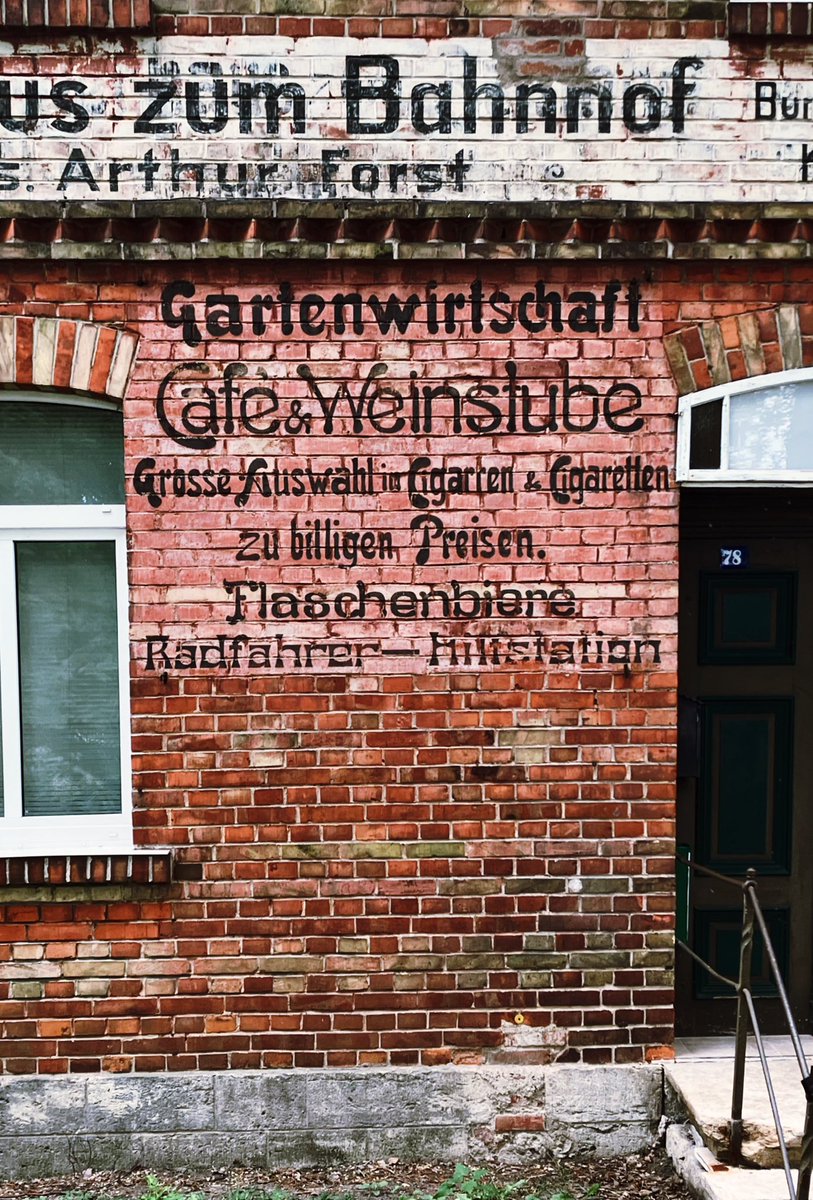 us zum Bahnhof Bur
s. Arthur Forst
Gartenwirtschaft
Café & Weinstube
Grosse Auswahl in Cigarren & Cigaretten
zu billigen Preisen.
Flaschenbiere
Radfahrer-Hilfstation
78